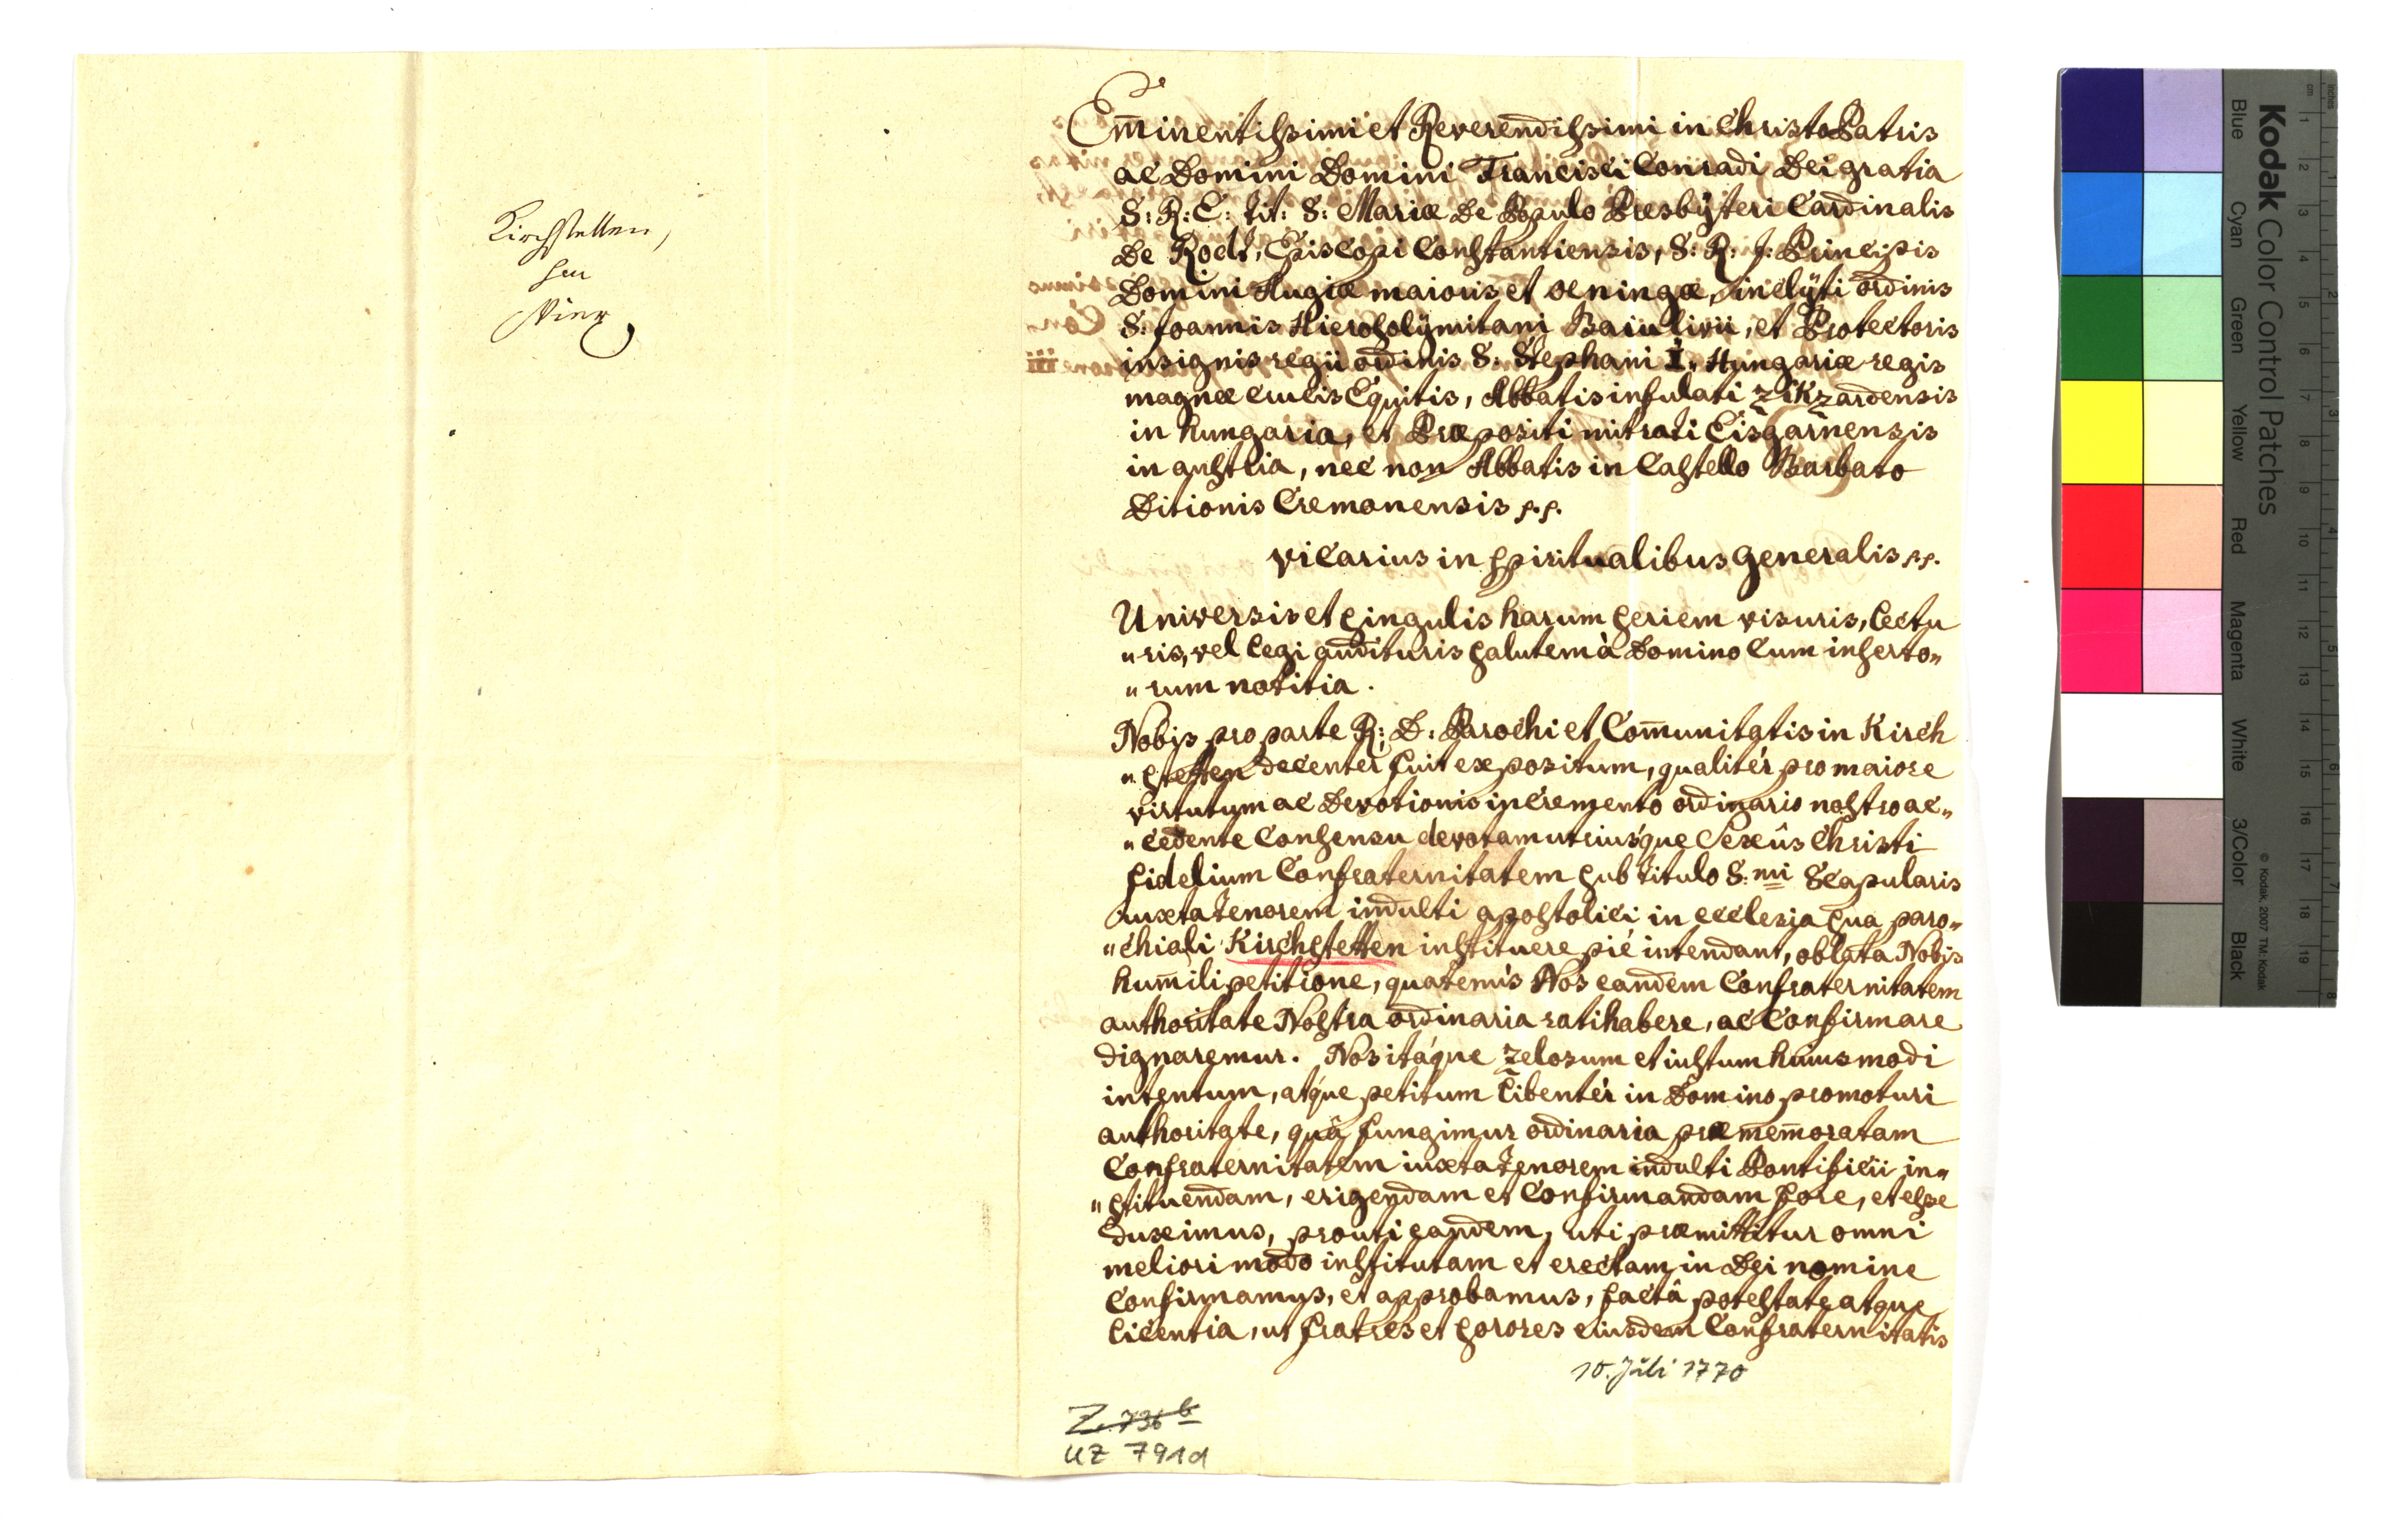 Kirchstetten,
Em̄inentissimi et Reverendissimi in Christo Patris
ac Domini Domini Francisci Conradi Dei gratia
S: R: E: tit: S: Mariæ De Populo Presbÿteri Cardinalis
De Rodt, Episcopi Constantiensis, S: R: J: Principis
Domini Augiæ maioris et oeningæ, inclÿti ordinis
S. Joannis Hierosolÿmitani Baiulivii, et Protectoris
insignis regii ordinis S: Stephani I. Hungariæ regis
magnæ crucis Equitis, Abbatis infulati Zikzardensis
in hungaria, et Præpositi mitrati Eisgarnensis
in austria, nec non Abbatis in Castello Barbato
Ditionis Cremonensis p.p.
vicarius in spiritualibus generalis p.p.
Universis et singulis harum seriem visuris, lectu
"ris, vel legi audituris salutem à Domino Cum inserto"
"rum notitia.
Nobis pro parte R: D: Parochi et Com̄unitatis in Kirch
"stetten decenter fuit expositum, qualitér pro maiore
virtutum ac Devotionis incremento ordinario nostro ac"
"cedente Consensu devotam utriusque Sexûs Christi
fidelium Confraternitatem sub titulo S:mi Scapularis
iuxta tenorem indulti apostolici in ecclesia sua paro"
"chiali Kirchstetten instituere pié intendant, oblata Nobis
hum̄ili petitione, quatenús Nos eandem Confraternitatem
authoritate Nostra ordinaria ratihabere, ac Confirmare
dignaremur. Nos itáque zelosum et iustum huiusmodi
intentum, atque petitum libentér in Domino promoturi
authoritate, quâ fungimur ordinaria præmem̄oratam
Confraternitatem iuxta tenorem indulti Pontificii in"
"stituendam, erigendam et Confirmandam fore, et esse
duximus, prouti eandem, uti præmittitur omni
meliori modo institutam et erectam in Dei nomine
Confirmamus, et approbamus, factâ potestate atque
licentia, ut fratres et sorores eiusdem Confraternitatis
10. Juli 1770
Z. 736 b
UZ 791d
Kodak Color Control Patches
Blue Cyan Green Yellow Red Magenta White 3/Color Black
© Kodak, 2007 TM: Kodak
cm 1 2 3 4 5 6 7 8 9 10 11 12 13 14 15 16 17 18 19
inches 1 2 3 4 5 6 7 8